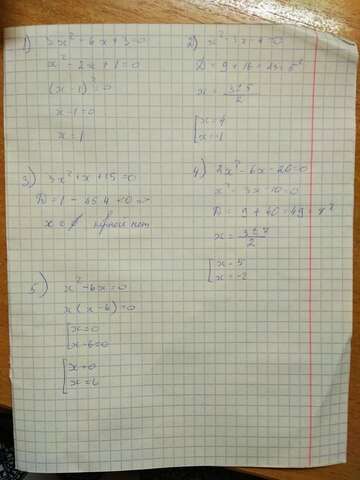 1) 3x² - 6x + 3 = 0
x² - 2x + 1 = 0
(x - 1)² = 0
x - 1 = 0
x = 1
2) x² - 3x - 4 = 0
D = 9 + 16 = 25 = 5²
x = (3 ± 5)/2
[x = 4
[x = -1
3) 3x² + x + 15 = 0
D = 1 - 45·4 < 0 =>
x ∈ ∅ корней нет
4) 2x² - 6x - 20 = 0
x² - 3x - 10 = 0
D = 9 + 40 = 49 = 7²
x = (3 ± 7)/2
[x = 5
[x = -2
5) x² - 6x = 0
x(x - 6) = 0
[x = 0
[x - 6 = 0
[x = 0
[x = 6